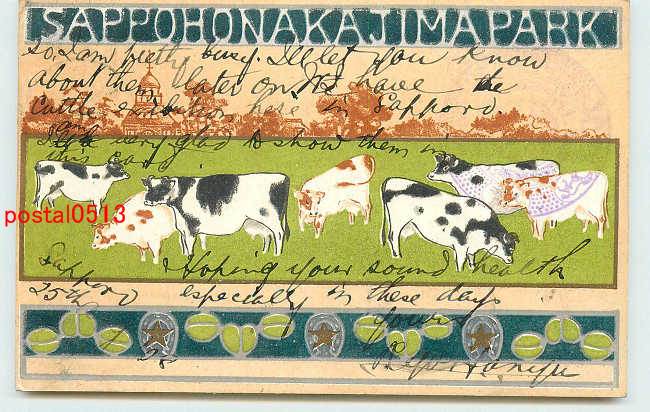 SAPPORONAKAJIMAPARK
so I am pretty busy. I'll let you know
about them later on. We have the
cattle exhibition here in Sapporo.
very glad to show them in
this card.
postal0513
Sapporo Hoping your sound health
25th especially in these days.
yours